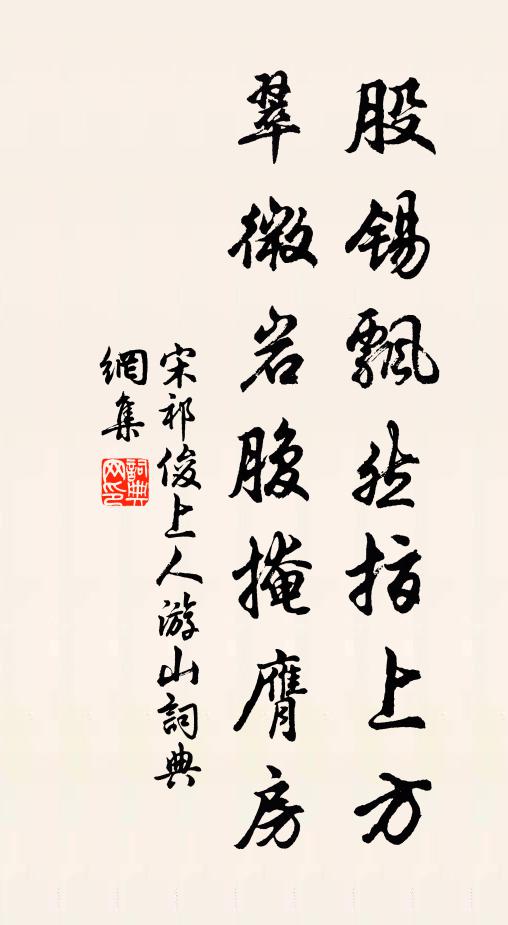 股錫飄然指上方
翠微岩腹掩膺房
宋祁俊上人游山詞典
網集
詞典
网印